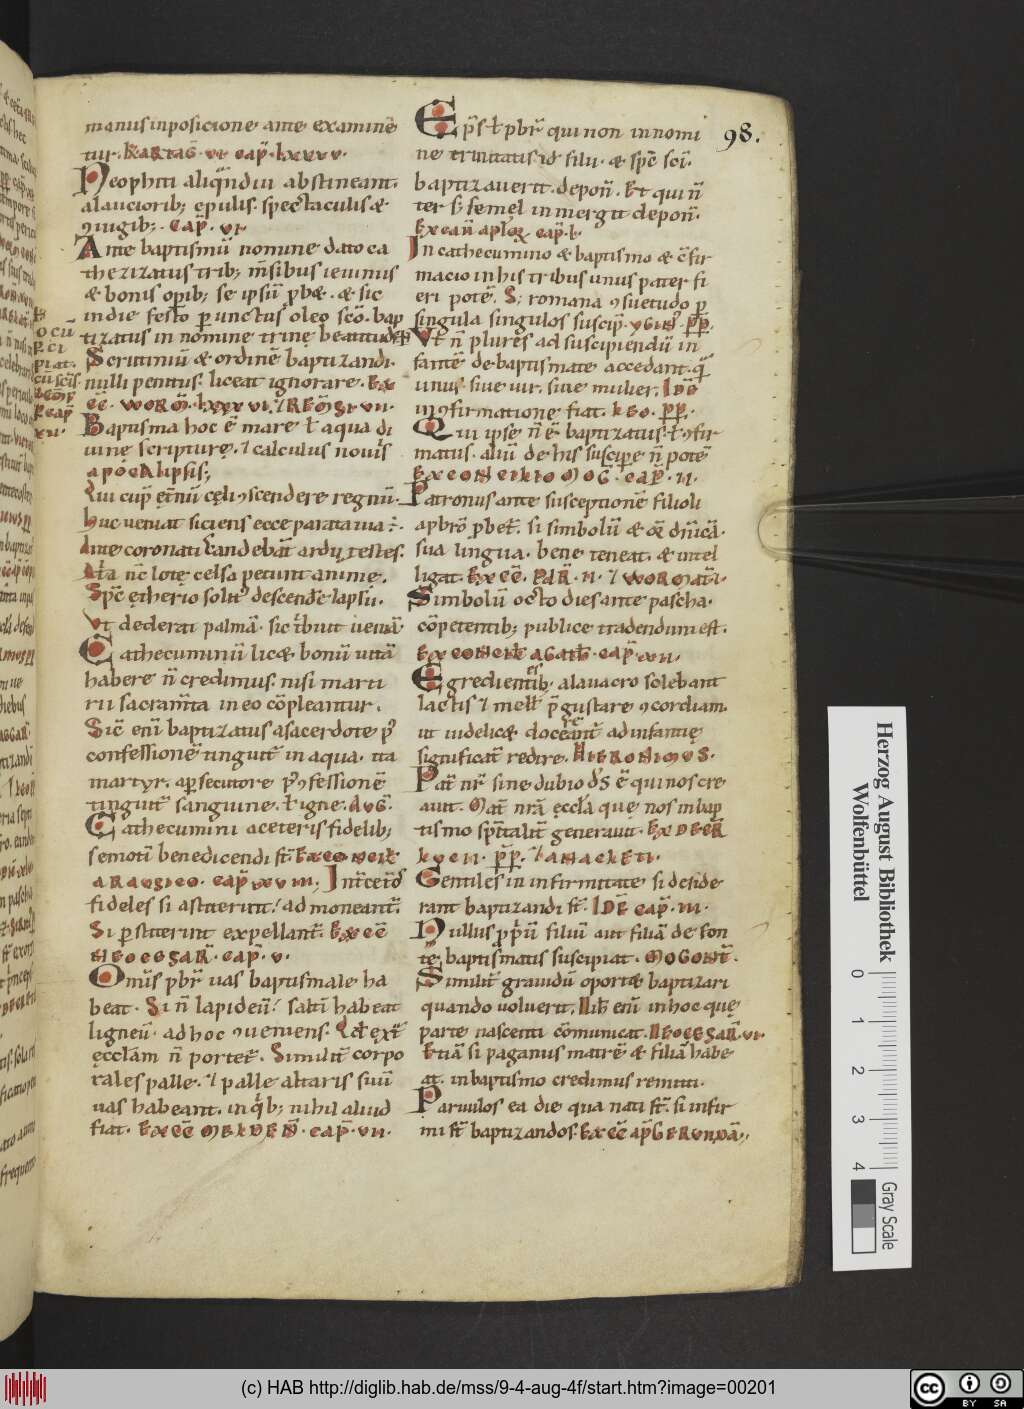 98.
manus inposicione ante examinē
tur. KARTAG̅ VI CAP̅. LXXXV.
Neophiti aliqn̄diu abstineant.
alauciorib; epulis. spectaculis &
ɔiugib;. CAP̅. VI.
Ante baptismū nomine dato ca
thezizatus trib; m̄sibus ieiuniis
& bonis op̄ib; se ipsū p̄b&. & sic
in die festo p̄unctus oleo sc̄o. bap
tizatus in nomine trinę beatitudīs
Scrutiniū & ordinē baptizandi.
nulli penitus. liceat ignorare. EX
CC̄. WORM̄. LXXXVI. ⁊ REM̄SI VII.
Baptisma hoc ē mare ł aqua di
uinę scripturę. ⁊ calculus nouꝰs
apocalipsis;
Qui cup̄ et̄nū cęli ɔscendere regnū.
huc ueniat siciens ecce parata uia ē.
Ante coronati candebāt ardu testes.
At̄a nc̄ lotę celsa petunt animę.
Sp̄c ętherio solitꝰ descend̄e lapsū.
Vt dederat palmā. sic t̄buit ueniā.
Cathecuminū lic& bonū uitā
habere n̄ credimus. nisi marti
rii sacram̄ta in eo cōpleantur.
Sic̄ eni̅ baptizatus a sacerdote pꝰ
confessionē tinguit̄ in aqua. ita
martyr. a p̱secutore pꝰ ɔfessionē
tinguit̄ sanguine. ł igne. AUG̅.
Cathecumini a ceteris fidelib;
semoti benedicendi st̄. EX CONCIL̄
ARAUSICO. CAP̅. XVIII; Int̄cend̄
fideles si astiterint! ad moneant̄.
Si p̱stiterint expellant̄. EX CC̄
NEOCESAR̄. CAP̅. V.
Omīs pb̄r uas baptismale ha
beat. Si n̄ lapideū! saltī habeat
ligneū. ad hoc ɔueniens. Qd̄ ext̄
ęcclām n̄ portet̄. Similit̄ corpo
rales palle. ⁊ palle altaris suū
uas habeant. in qͥb; nihil aliud
fiat. EX CC̄ MELDEN̄. CAP̅. VII.
Ep̄s ł pb̄r qui non in nomi
ne trinitatis id filii. & sp̄c sc̄i.
baptizauerit. depon̄. Et qui n̄
ter s̄ semel in mergit depon̄.
EX CAN̄ APL̄OR̄. CAP̅. L.
In cathecumino & baptismo & c̄fir
macio in his tribus unus pater fi
eri potē. S; romana ɔsuetudo p̱
singula singulos suscip̄. YGIN̄. PP̄.
Vt n̄ plures ad suscipiendū in
fantē de baptismate accedant. qͣ
unus. siue uir. siue mulier. IDĒ
in ɔfirmatione fiat. LEO. PP̄.
Qui ipse n̄ ē baptizatus. ł ɔfir
matus. aliū de his suscip̱e n̄ potē
EX CONCILIO MOG̅. CAP̅. II.
Patronus ante susceptionē filioli
a pb̄ro p̄bet̄. si simbolū & oc̄ dn̄icā.
sua lingua. bene teneat. & intel
ligat. EX CC̄. PAR̄. II. ⁊ WORMAT̄I.
Simbolū octo dies ante pascha.
cōpetentib; publice tradendum est.
EX CONCIL̄ AGATH̄. CAP̅. XII.
Egredientib; a lauacro solebant
lactis ⁊ mell̄ p̄gustare ɔcordiam.
ut uidelic& doceant̄ ad infantię
significat̄ redire. HIERONIMUS.
Pat̄ nr̄ sine dubio d̄s ē qui nos cre
auit. Mat̄ nrā ęcclā que nos in bap
tismo sp̄italit̄ generauit. EX DECR̄
LUCII. PP̄. ⁊ ANACLETI.
Gentiles in infirmitate si deside
rant baptizandi st̄. IDE CAP̅. III.
Nullus ꝓpriū filiū aut filiā de fon
te baptismatis suscipiat. MOGONT̄.
Similit̄ grauidū oport& baptizari
quando uoluerit. Nih̄ eni̅ in hoc que
parte nascenti cōmunicat. NEOCESAR̄. VI
Etiā si paganus matrē & filiā habe
at. in baptismo credimus remitti.
Paruulos ea die qua nati st̄. si infir
mi st̄ baptizandos. EX CC̄ AP̄ GERUNDĀ.
Herzog August Bibliothek
Wolfenbüttel
0 1 2 3 4
Gray Scale
(c) HAB http://diglib.hab.de/mss/9-4-aug-4f/start.htm?image=00201
cc BY SA